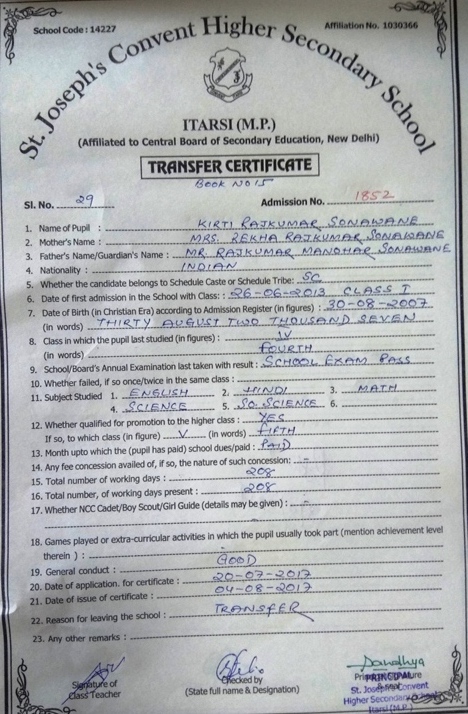 School Code : 14227
Affiliation No. 1030366
St. Joseph's Convent Higher Secondary School
ITARSI (M.P.)
(Affiliated to Central Board of Secondary Education, New Delhi)
TRANSFER CERTIFICATE
BOOK NO 15
Sl. No. 29 Admission No. 1852
1. Name of Pupil : KIRTI RAJKUMAR SONAWANE
2. Mother's Name : MRS. REKHA RAJKUMAR SONAWANE
3. Father's Name/Guardian's Name : MR. RAJKUMAR MANOHAR SONAWANE
4. Nationality : INDIAN
5. Whether the candidate belongs to Schedule Caste or Schedule Tribe : SC
6. Date of first admission in the School with Class : 26-06-2013 CLASS I
7. Date of Birth (in Christian Era) according to Admission Register (in figures) : 30-08-2007
(in words) THIRTY AUGUST TWO THOUSAND SEVEN
8. Class in which the pupil last studied (in figures) : IV
(in words) FOURTH
9. School/Board's Annual Examination last taken with result : SCHOOL EXAM PASS
10. Whether failed, if so once/twice in the same class :
11. Subject Studied 1. ENGLISH 2. HINDI 3. MATH
4. SCIENCE 5. SO. SCIENCE 6.
12. Whether qualified for promotion to the higher class : YES
If so, to which class (in figure) V (in words) FIFTH
13. Month upto which the (pupil has paid) school dues/paid : PAID
14. Any fee concession availed of, if so, the nature of such concession : -
15. Total number of working days : 208
16. Total number, of working days present : 208
17. Whether NCC Cadet/Boy Scout/Girl Guide (details may be given) : -
18. Games played or extra-curricular activities in which the pupil usually took part (mention achievement level
therein ) :
19. General conduct : GOOD
20. Date of application. for certificate : 20-07-2017
21. Date of issue of certificate : 04-08-2017
22. Reason for leaving the school : TRANSFER
23. Any other remarks :
Signature of
Class Teacher
Checked by
(State full name & Designation)
Sandhya
PRINCIPAL
St. Joseph's Convent
Higher Secondary School
Itarsi (M.P.)